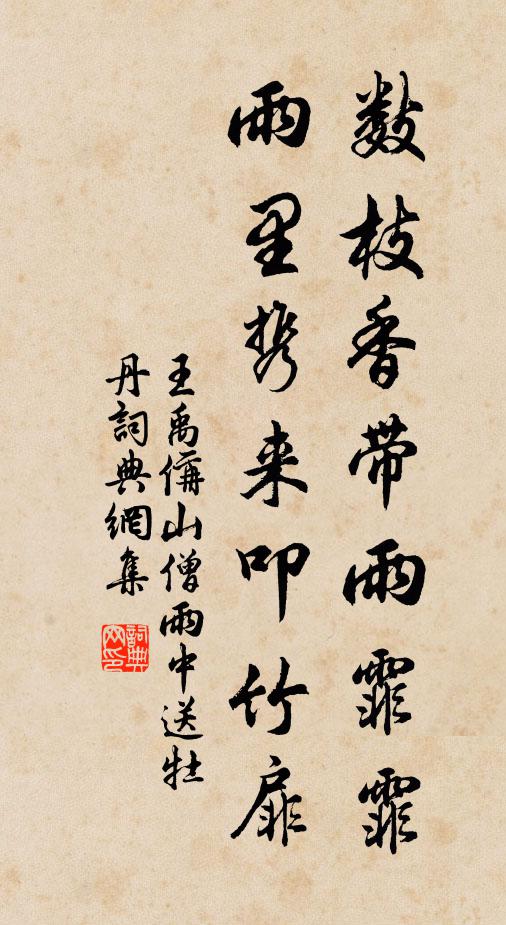 数枝香带雨霏霏
雨里携来叩竹扉
王禹偁山僧雨中送牡
丹詞典網集
詞典
网印